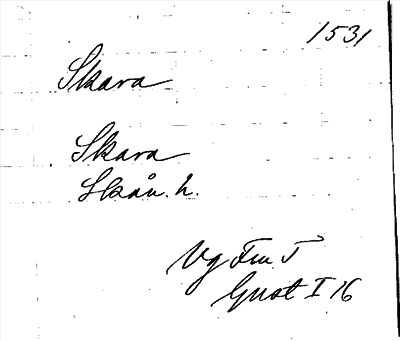 1531
Skara
Skara
Skån. h.
Vg Fm T
Gust I 16